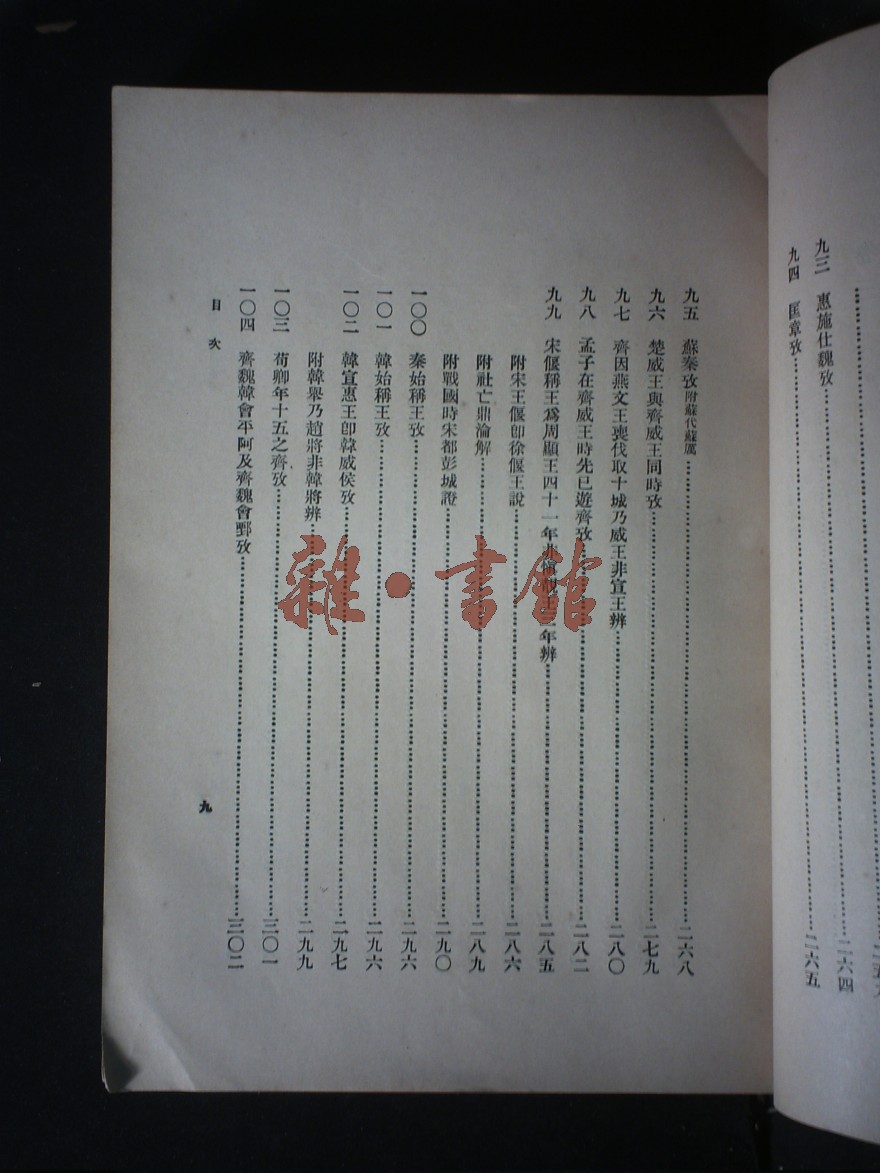 九三 惠施仕魏攷……二六四
九四 匡章攷……二六五
九五 蘇秦攷附蘇代蘇厲……二六八
九六 楚威王與齊威王同時攷……二七九
九七 齊因燕文王喪伐取十城乃威王非宣王辨……二八〇
九八 孟子在齊威王時先已遊齊攷……二八二
九九 宋偃稱王爲周顯王四十一年非 年辨……二八五
附宋王偃卽徐偃王說……二八六
附社亡鼎淪解……二八九
附戰國時宋都彭城證……二九〇
一〇〇 秦始稱王攷……二九六
一〇一 韓始稱王攷……二九六
一〇二 韓宣惠王卽韓威侯攷……二九七
附韓舉乃趙將非韓將辨……二九九
一〇三 荀卿年十五之齊攷……三〇一
一〇四 齊魏韓會平阿及齊魏會鄄攷……三〇二
目次
九
雜·書館